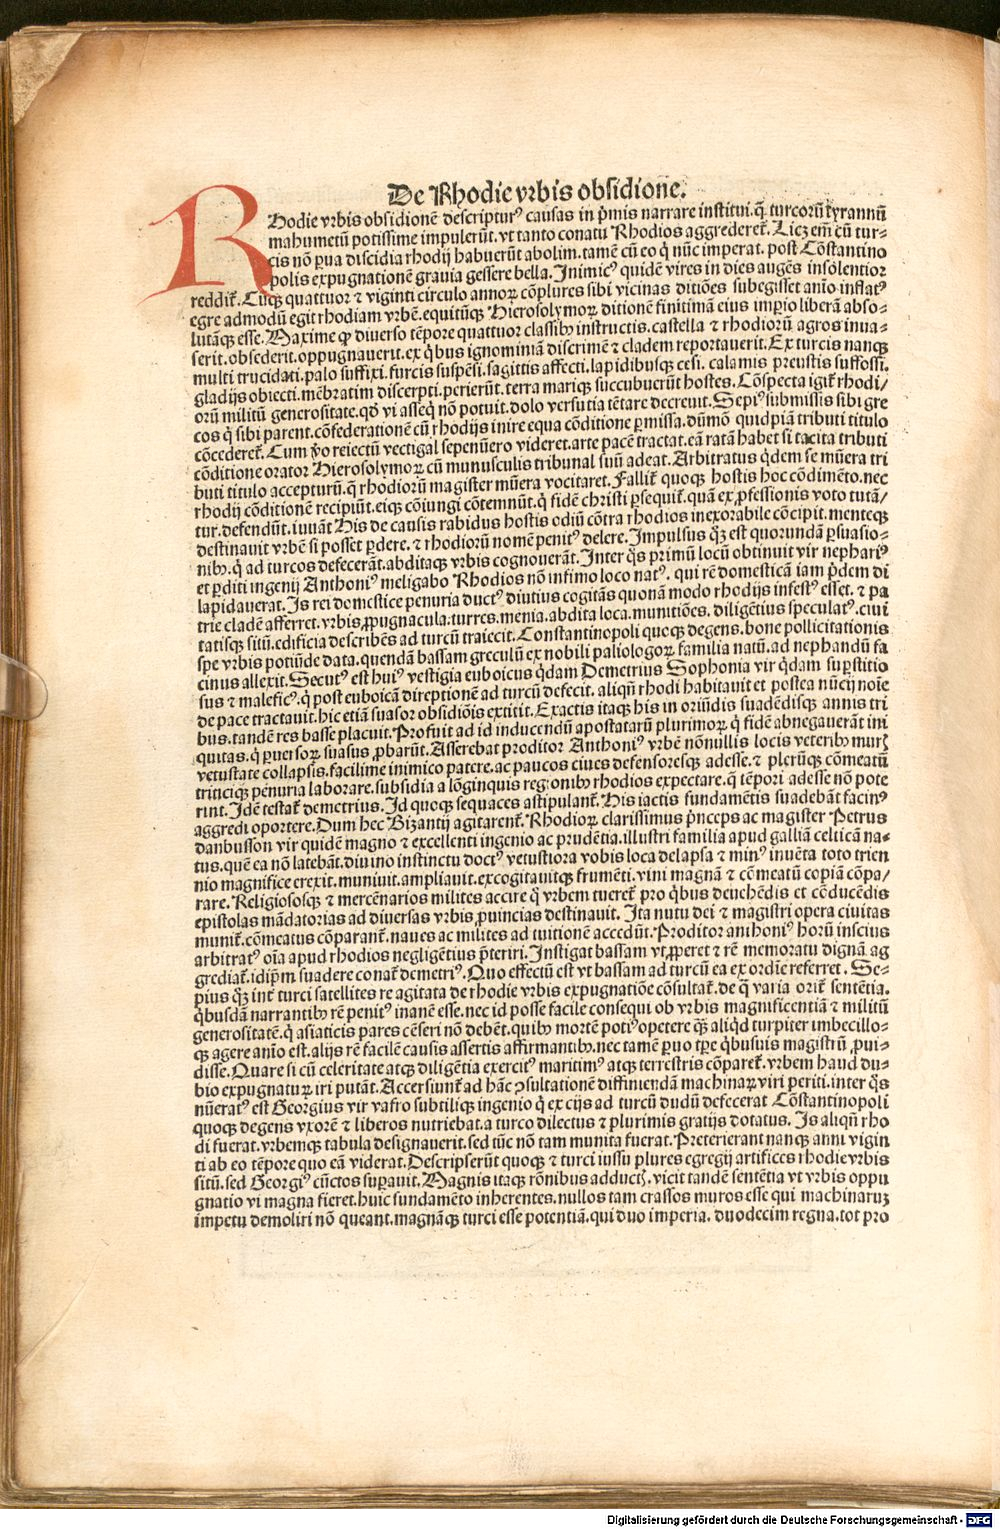 De Rhodie vrbis obsidione.
RHodie vrbis obsidionē descripturꝰ causas in p̄mis narrare institui. q̄ turcorū tyrannū
mahumetū potissime impulerūt. vt tanto conatu Rhodios aggrederet̃. Licꝫ em̄ cū tur-
cis nō ꝑua discidia rhodij habuerūt abolim. tamē cū eo q̄ nūc imperat. post Cōstantino
polis expugnationē grauia gessere bella. Inimicꝰ quidē vires in dies augēs insolentior
reddit̃. Cūqꝫ quattuor ⁊ viginti circulo annoꝝ cōplures sibi vicinas ditiōes subegisset anīo inflatꝰ
egre admodū egit rhodiam vrbē. equitūqꝫ Hierosolymoꝝ ditionē finitimā eius imꝑio liberā abso-
lutāqꝫ esse. Maxime ꝙ diuerso tēpore quattuor classibꝫ instructis. castella ⁊ rhodiorū agros inua-
serit. obsederit. oppugnauerit. ex q̄bus ignominiā discrimē ⁊ cladem reportauerit. Ex turcis nanqꝫ
multi trucidati. palo suffixi. furcis suspēsi. sagittis affecti. lapidibusqꝫ cesi. calamis preustis suffossi.
gladijs obiecti. mēbratim discerpti. perierūt. terra mariqꝫ succubuerūt hostes. Cōspecta igit̃ rhodi/
orū militū generositate. qd̄ vi asseq̄ nō potuit. dolo versutia tētare decreuit. Sepiꝰ submissis sibi gre
cos q̄ sibi parent. cōfederationē cū rhodijs inire equa cōditione ꝑmissa. dūmō quidpiā tributi titulo
cōcederet̃. Cum v̄o reiectū vectigal sepenūero videret. arte pacē tractat. eā ratā habet si tacita tributi
cōditione orator Hierosolymoꝝ cū munusculis tribunal suū adeat. Arbitratus q̄dem se mūera tri
buti titulo accepturū. q̄ rhodiorū magister mūera vocitaret. Fallit̃ quoqꝫ hostis hoc cōdimēto. nec
rhodij cōditionē recipiūt. eiqꝫ cōiungi cōtemnūt. q̄ fidē christi ꝑsequit̃. quā ex ꝓfessionis voto tutā/
tur. defendūt. iuuāt His de causis rabidus hostis odiū cōtra rhodios inexorabile cōcipit. menteqꝫ
destinauit vrbē si posset ꝑdere. ⁊ rhodiorū nomē penitꝰ delere. Impulsus q̄ꝫ est quorundā ꝑsuasio-
nibꝫ. q̄ ad turcos defecerāt. abditaqꝫ vrbis cognouerāt. Inter q̄s primū locū obtinuit vir nephariꝰ
et ꝑditi ingenij Anthoniꝰ meligabo Rhodios nō infimo loco natꝰ. qui rē domesticā iam p̄dem di
lapidauerat. Is rei domestice penuria ductꝰ diutius cogitās quonā modo rhodijs infestꝰ esset. ⁊ pa
trie cladē afferret. vrbis ꝓpugnacula. turres. menia. abdita loca. munitiōes. diligētius speculatꝰ. ciui
tatisqꝫ sitū. edificia describēs ad turcū traiecit. Constantinopoli quoqꝫ degens. bone pollicitationis
spe vrbis potiūde data. quendā bassam greculū ex nobili paliologoꝝ familia natū. ad nephandū fa
cinus allexit. Secutꝰ est huiꝰ vestigia euboicus q̄dam Demetrius Sophonia vir q̄dam suꝑstitio
sus ⁊ maleficꝰ. q̄ post euboicā direptionē ad turcū defecit. aliqn̄ rhodi habitauit et postea nūcij noīe
de pace tractauit. hic etiā suasor obsidiōis extitit. Exactis itaqꝫ his in oriūdis suadēdisqꝫ annis tri
bus. tandē res basse placuit. Profuit ad id inducendū apostatarū plurimoꝝ q̄ fidē abnegauerāt ini
quitas. q̄ ꝑuersoꝝ suasus ꝓbarūt. Asserebat proditor Anthoniꝰ vrbē nōnullis locis veteribꝫ muris
vetustate collapsis. facilime inimico patere. ac paucos ciues defensoresqꝫ adesse. ⁊ plerūqꝫ cōmeatū
triticiqꝫ penuria laborare. subsidia a lōginquis regionibꝫ rhodios expectare. q̄ tēpori adesse nō pote
rint. Idē testat̃ demetrius. Id quoqꝫ sequaces astipulant̃. His iactis fundamētis suadebāt facinꝰ
aggredi oportere. Dum hec Bizantij agitarent̃. Rhodioꝝ clarissimus p̄nceps ac magister Petrus
danbusson vir quidē magno ⁊ excellenti ingenio ac prudētia. illustri familia apud galliā celticā na-
tus. quē ea nō latebāt. diuino instinctu doctꝰ vetustiora vobis loca delapsa ⁊ minꝰ inuēta toto trien
nio magnifice erexit. muniuit. ampliauit. excogitauitqꝫ frumēti. vini magnā ⁊ cōmeatū copiā cōpa/
rare. Religiososqꝫ ⁊ mercēnarios milites accire q̄ vrbem tueret̃ pro q̄bus deuehēdis et cōducēdis
epistolas mādatorias ad diuersas vrbis ꝓuincias destinauit. Ita nutu dei ⁊ magistri opera ciuitas
munit̃. cōmeatus cōparant̃. naues ac milites ad tuitionē accedūt. Proditor anthoniꝰ horū inscius
arbitratꝰ oīa apud rhodios negligētius p̄teriri. Instigat bassam vt ꝓꝑeret ⁊ rē memoratu dignā ag
grediat̃. idip̄m suadere conat̃ demetriꝰ. Quo effectū est vt bassam ad turcū ea ex ordīe referret. Se-
pius q̄ꝫ int̃ turci satellites re agitata de rhodie vrbis expugnatiōe cōsultat̃. de q̄ varia orit̃ sentētia.
q̄busdā narrantibꝫ rē penitꝰ inanē esse. nec id posse facile consequi ob vrbis magnificentiā ⁊ militū
generositatē. q̄ asiaticis pares cēseri nō debēt. quibꝫ mortē potiꝰ opetere q̄ꝫ aliq̄d turpiter imbecillo-
qꝫ agere anīo est. alijs rē facilē causis assertis affirmantibꝫ. nec tamē ꝑuo tꝑe q̄busuis magistrū ꝓui-
disse. Quare si cū celeritate atqꝫ diligētia exercitꝰ maritimꝰ atqꝫ terrestris cōparet̃. vrbem haud du-
bio expugnatuꝝ iri putāt. Accersiunt̃ ad hāc ɔsultationē diffiniendā machinaꝝ viri periti. inter q̄s
nūeratꝰ est Georgius vir vafro subtiliqꝫ ingenio q̄ ex cijs ad turcū dudū defecerat Cōstantinopoli
quoqꝫ degens vxorē ⁊ liberos nutriebat. a turco dilectus ⁊ plurimis gratijs dotatus. Is aliqn̄ rho
di fuerat. vrbemqꝫ tabula designauerit. sed tūc nō tam munita fuerat. Preterierant nanqꝫ anni vigin
ti ab eo tēpore quo eā viderat. Descripserūt quoqꝫ ⁊ turci iussu plures egregij artifices rhodie vrbis
sitū. sed Georgiꝰ cūctos suꝑauit. Magnis itaqꝫ rōnibus adductis. vicit tandē sentētia vt vrbis oppu
gnatio vi magna fieret. huic fundamēto inherentes. nullos tam crassos muros esse qui machinaruꝫ
impetu demoliri nō queant. magnāqꝫ turci esse potentiā. qui duo imperia. duodecim regna. tot pro
Digitalisierung gefördert durch die Deutsche Forschungsgemeinschaft - DFG